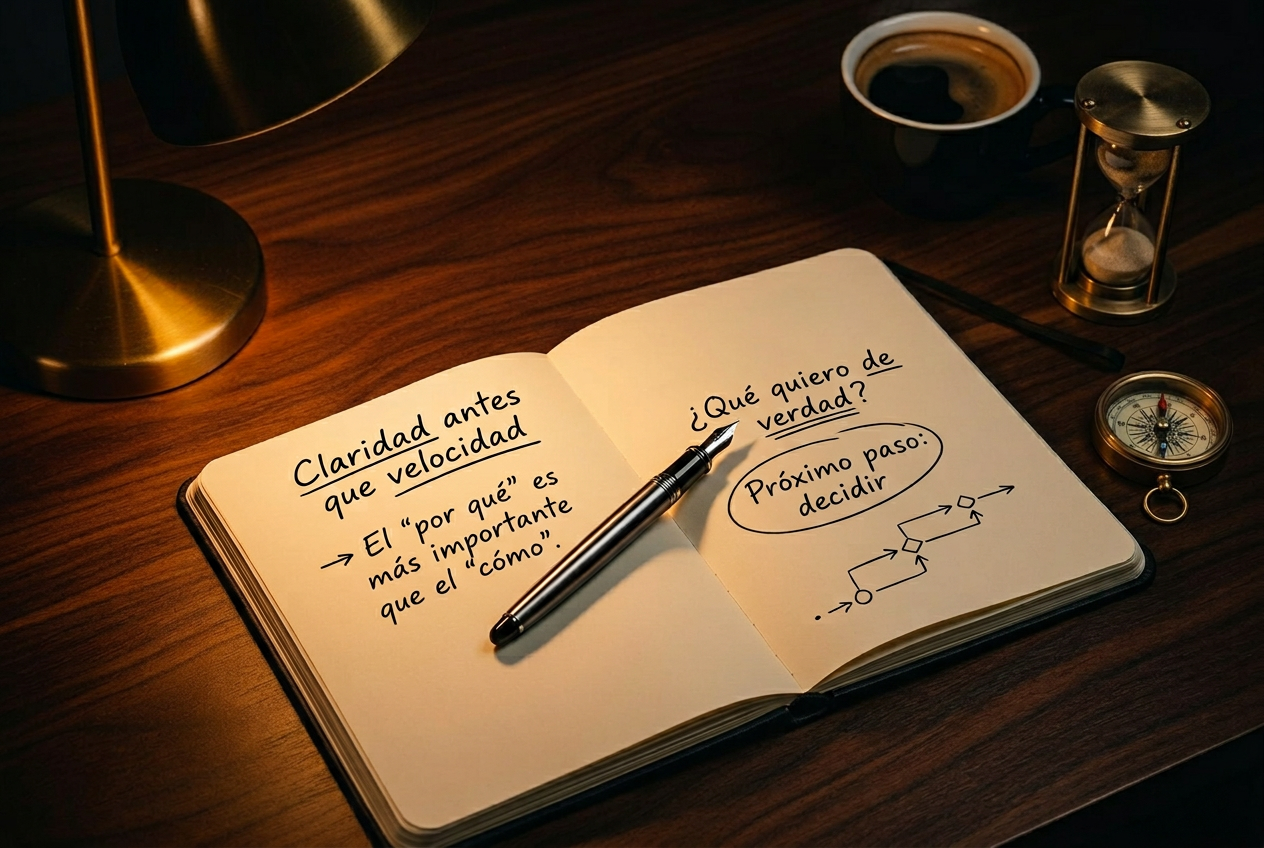 Claridad antes
que velocidad
→ El “por qué” es
más importante
que el “cómo”.
¿Qué quiero de
verdad?
Próximo paso:
decidir